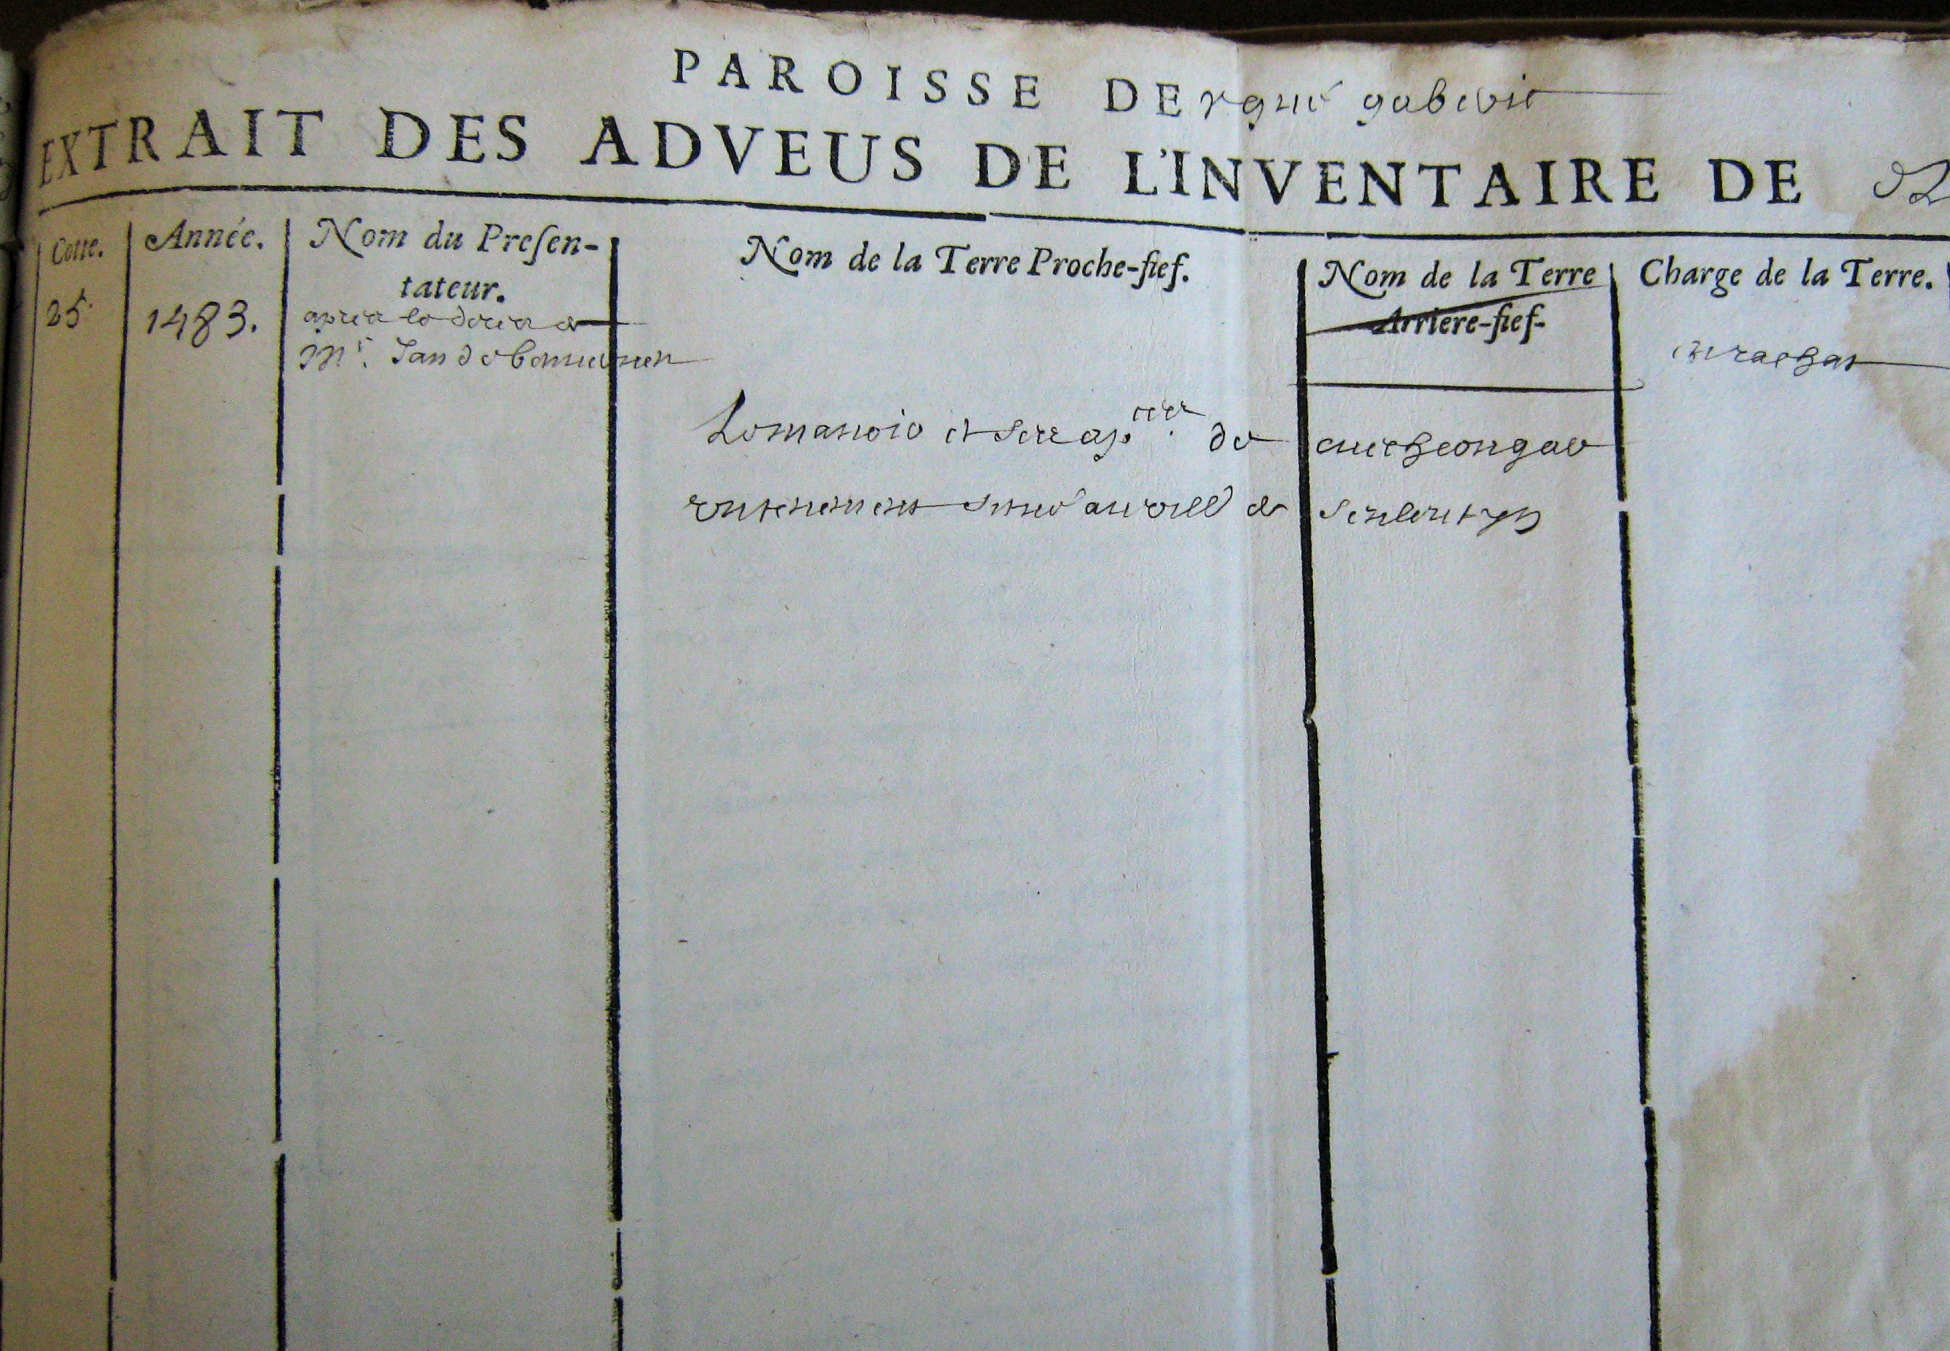 PAROISSE DE Ergué gaberic
EXTRAIT DES ADVEUS DE L'INVENTAIRE DE
Cotte. Année. Nom du Presen-
tateur. Nom de la Terre Proche-fief. Nom de la Terre
Arriere-fief. Charge de la Terre.
25. 1483. apres le deces de
Mr. Jan de
en rachat
Le manoir et de
un tenement au vill de